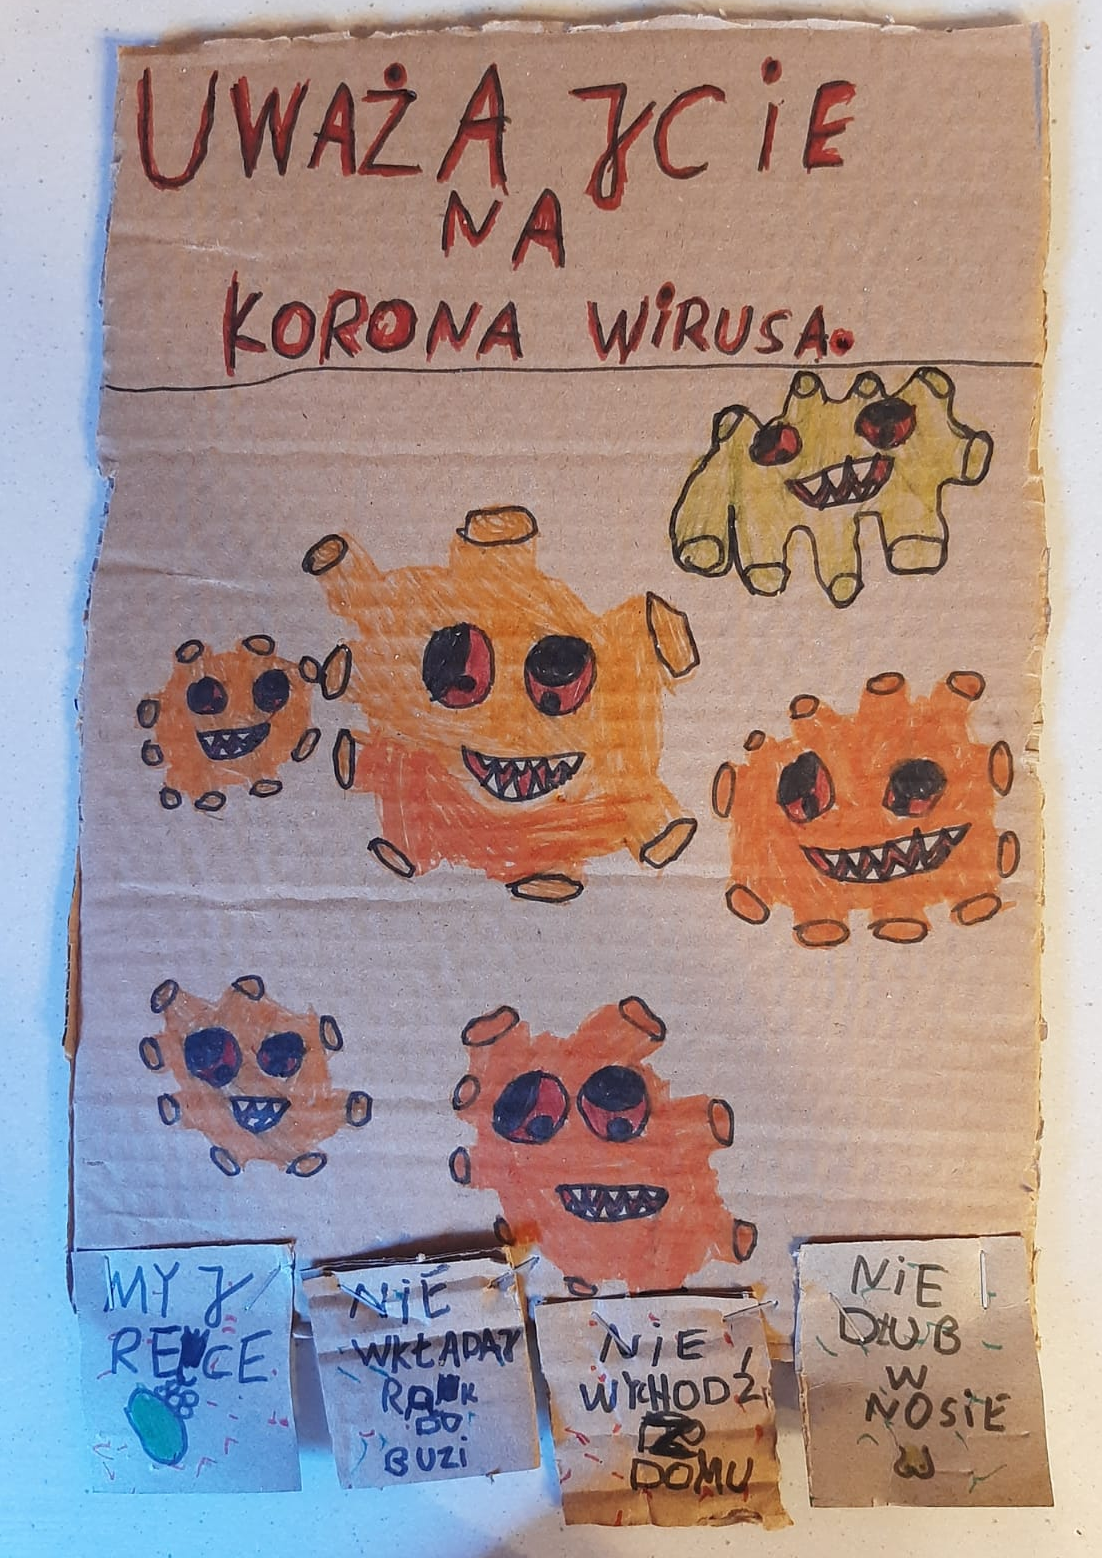 UWAŻAJCIE
NA
KORONA WIRUSA.
MYJ
RECE
NIE
WKŁADAJ
RAK
DO
BUZI
NIE
WYCHODŹ
Z
DOMU
NIE
DŁUB
W
NOSIE